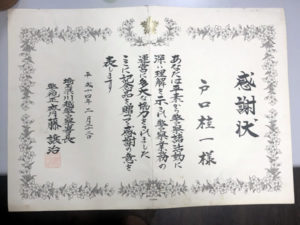 感謝状
戸口桂一様
あなたは五年警察諸活動に
深い理解を示され警察業務の
運営に多大の協力をされました
ここに記念品を贈って感謝の意を
表します
平成一四年二月二六日
埼玉県川越警察署長